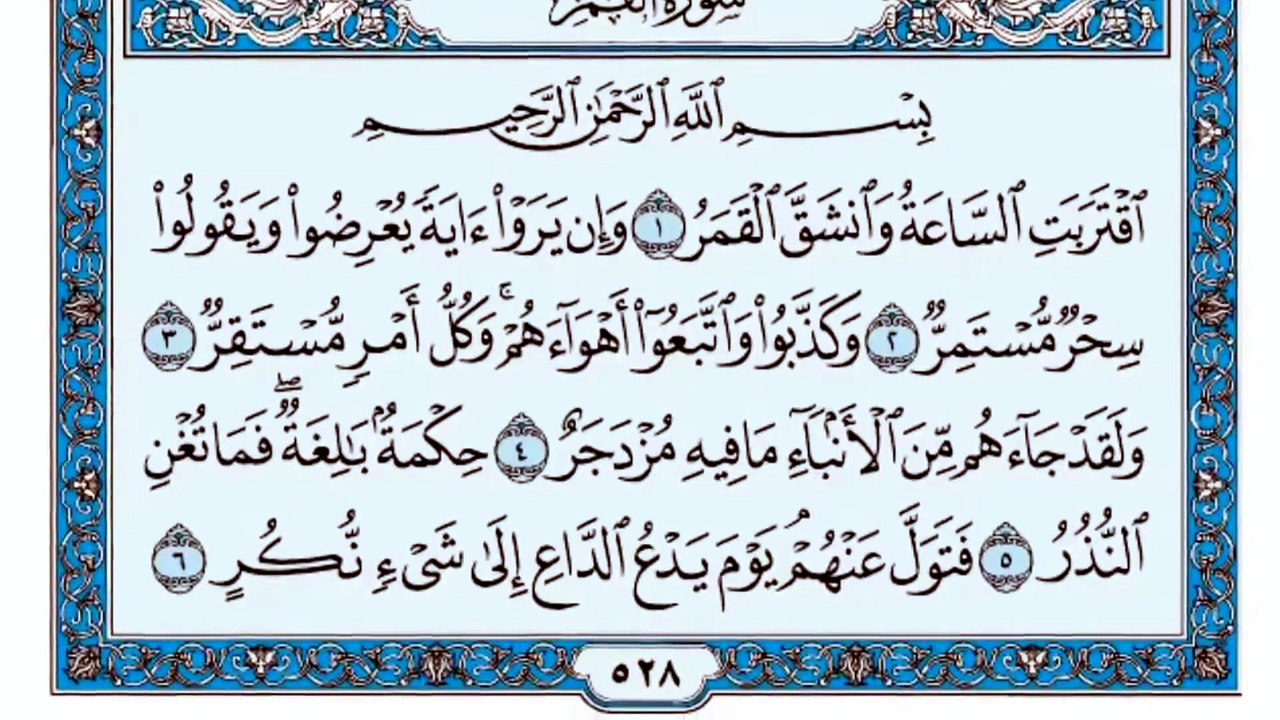 سُورَةُ القَمَرِ
بِسْمِ ٱللَّهِ ٱلرَّحْمَٰنِ ٱلرَّحِيمِ
ٱقْتَرَبَتِ ٱلسَّاعَةُ وَٱنشَقَّ ٱلْقَمَرُ ١ وَإِن يَرَوْا۟ ءَايَةً يُعْرِضُوا۟ وَيَقُولُوا۟
سِحْرٌ مُّسْتَمِرٌّ ٢ وَكَذَّبُوا۟ وَٱتَّبَعُوٓا۟ أَهْوَآءَهُمْ ۚ وَكُلُّ أَمْرٍ مُّسْتَقِرٌّ ٣
وَلَقَدْ جَآءَهُم مِّنَ ٱلْأَنۢبَآءِ مَا فِيهِ مُزْدَجَرٌ ٤ حِكْمَةٌۢ بَٰلِغَةٌ ۖ فَمَا تُغْنِ
ٱلنُّذُرُ ٥ فَتَوَلَّ عَنْهُمْ ۘ يَوْمَ يَدْعُ ٱلدَّاعِ إِلَىٰ شَىْءٍ نُّكُرٍ ٦
٥٢٨